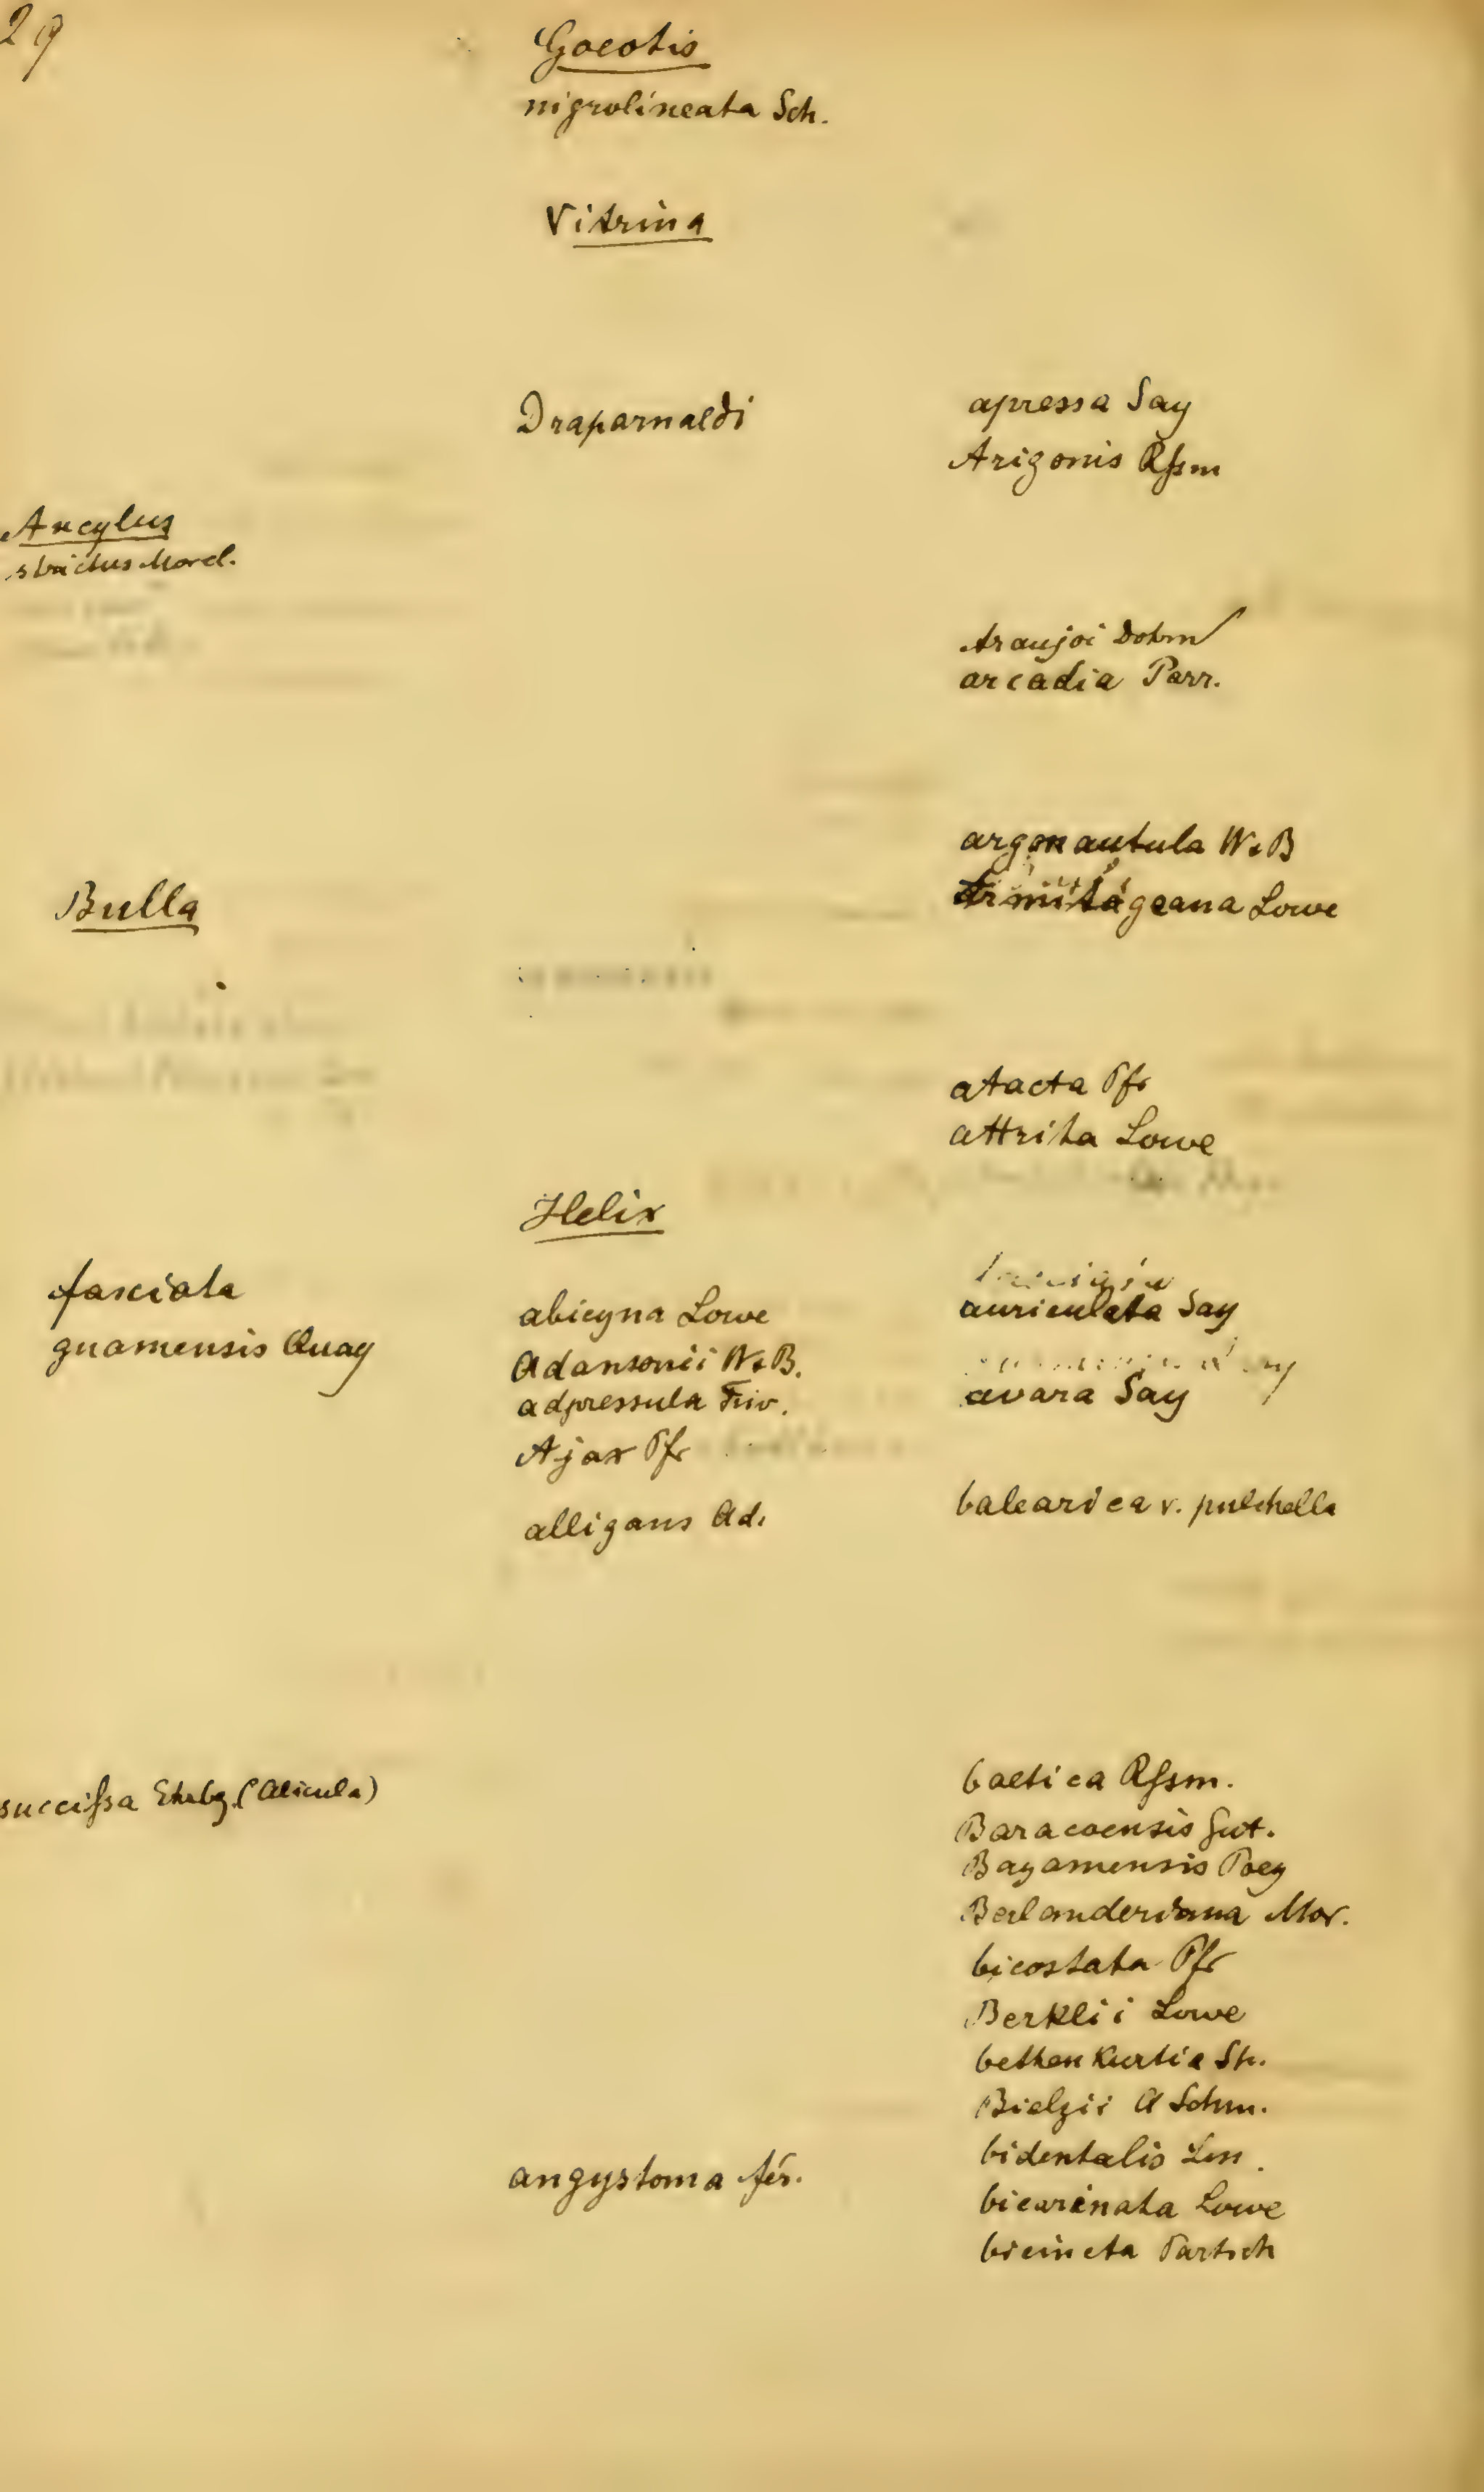 29
Ancylus
strictus Morel.
Bulla
fasciata
guamensis Quay
succifsa Ehrbg. (Alicula)
Gaeotis
nigrolineata Sch.
Vitrina
Draparnaldi
Helix
abicyna Lowe
Adansonii W&B.
adpressula Friv.
Ajax Pfr
alligans Ad.
angystoma fér.
apressa Say
Arigonis Rfsm
Araujoi Dohrn
arcadia Parr.
argonautula W&B
Armitageana Lowe
atacta Pfr
attrita Lowe
auriculata Say
avara Say
balearica v. pulchella
baetica Rfsm.
Baracoensis Gut.
Bayamensis Poey
Berlanderiana Mor.
bicostata Pfr
Berklii Lowe
bethenkurtia Sh.
Bielzii A Schm.
bidentalis Lm.
bicarinata Lowe
bicincta Partsch